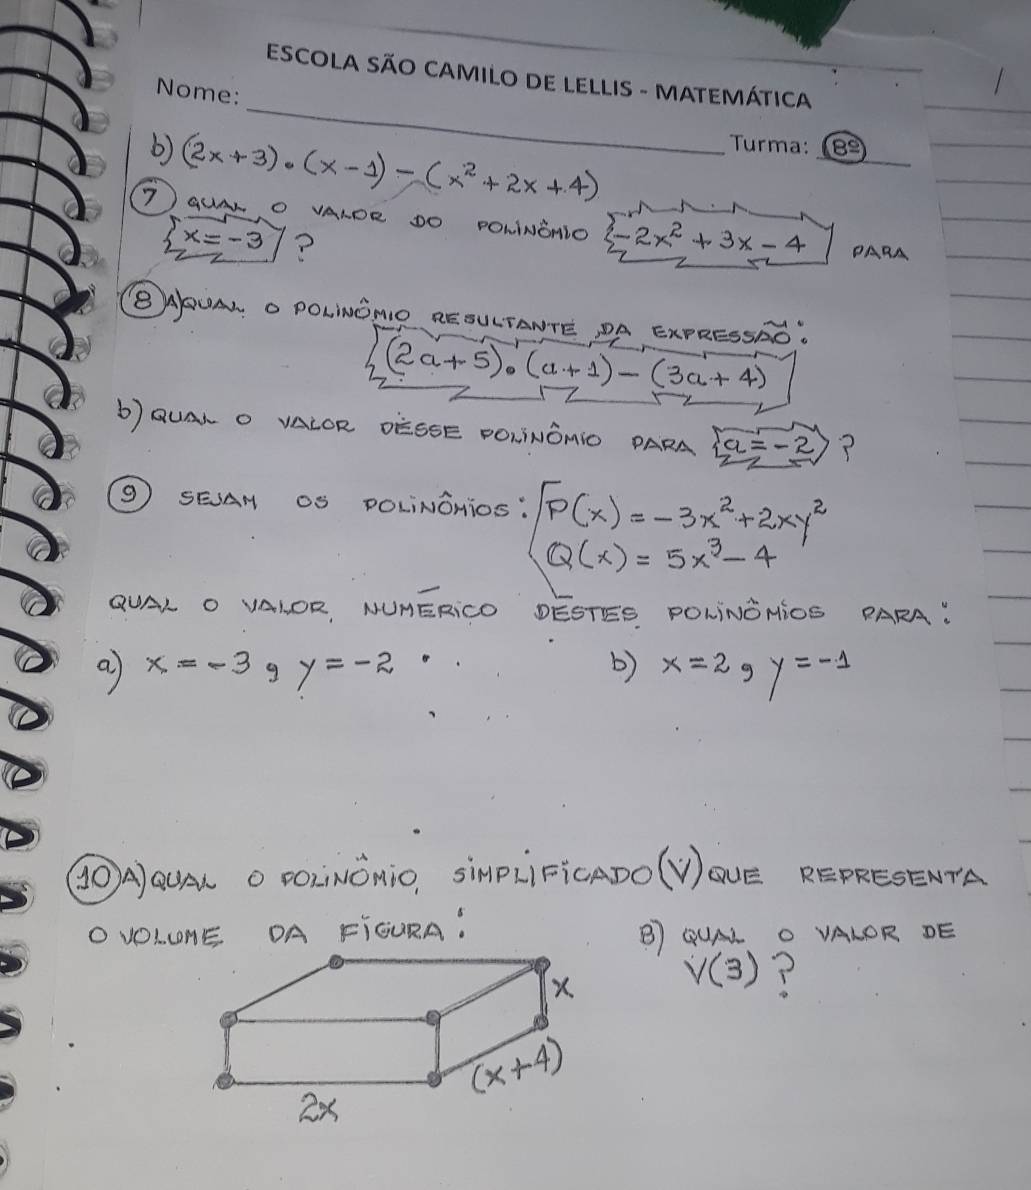 ESCOLA SÃO CAMILO DE LELLIS - MATEMÁTICA
Nome:
Turma: 8º
b) (2x+3).(x-1)-(x²+2x+4)
7 QUAL O VALOR DO POLINÔMIO -2x²+3x-4 PARA
x=-3?
8 A) QUAL O POLINÔMIO RESULTANTE DA EXPRESSÃO:
(2a+5).(a+1)-(3a+4)
b) QUAL O VALOR DESSE POLINÔMIO PARA a=-2?
9 SEJAM OS POLINÔMIOS: P(x)=-3x²+2xy²
Q(x)=5x³-4
QUAL O VALOR NUMÉRICO DESTES POLINÔMIOS PARA:
a) x=-3, y=-2 b) x=2, y=-1
10 A) QUAL O POLINÔMIO, SIMPLIFICADO (V) QUE REPRESENTA
O VOLUME DA FIGURA:
B) QUAL O VALOR DE
V(3)?
x
(x+4)
2x